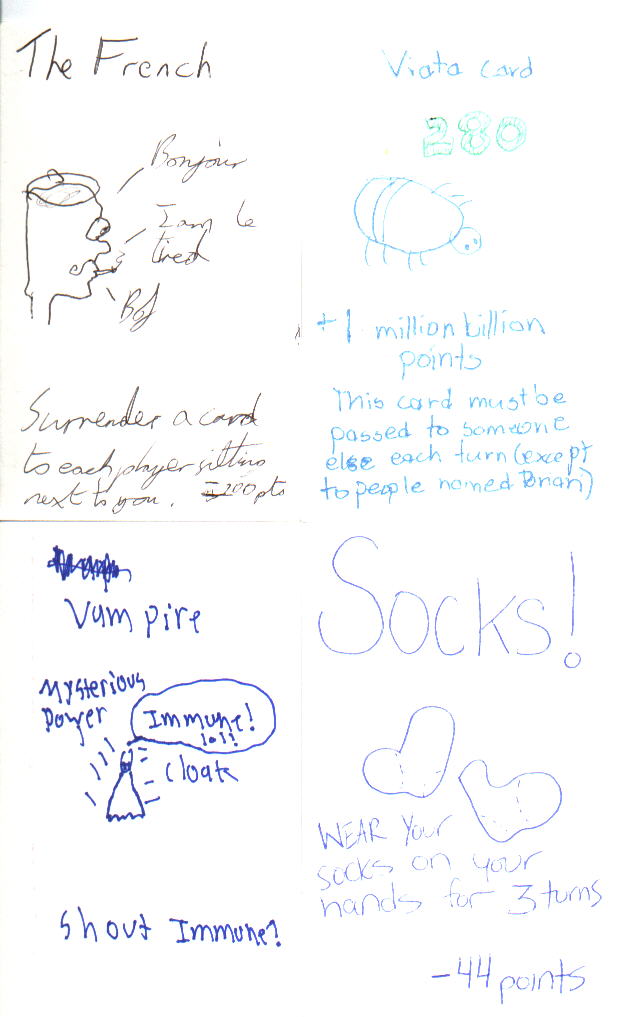 The French
Bonjour
I am le
tired
Bof
Surrender a card
to each player sitting
next to you. -200 pts
Viata card
280
+1 million billion
points
This card must be
passed to someone
else each turn (except
to people named Brian)
Vampire
Mysterious
Power
Immune!
lol!!
Cloak
Shout Immune!
Socks!
WEAR Your
socks on your
hands for 3 turns
-44 points